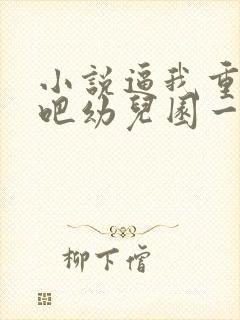 小說逼我重
吧幼兒園一
柳下僧